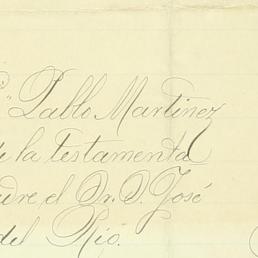 Pablo Martinez
de la testamenta
padre el Dr. D. José
del Rio.